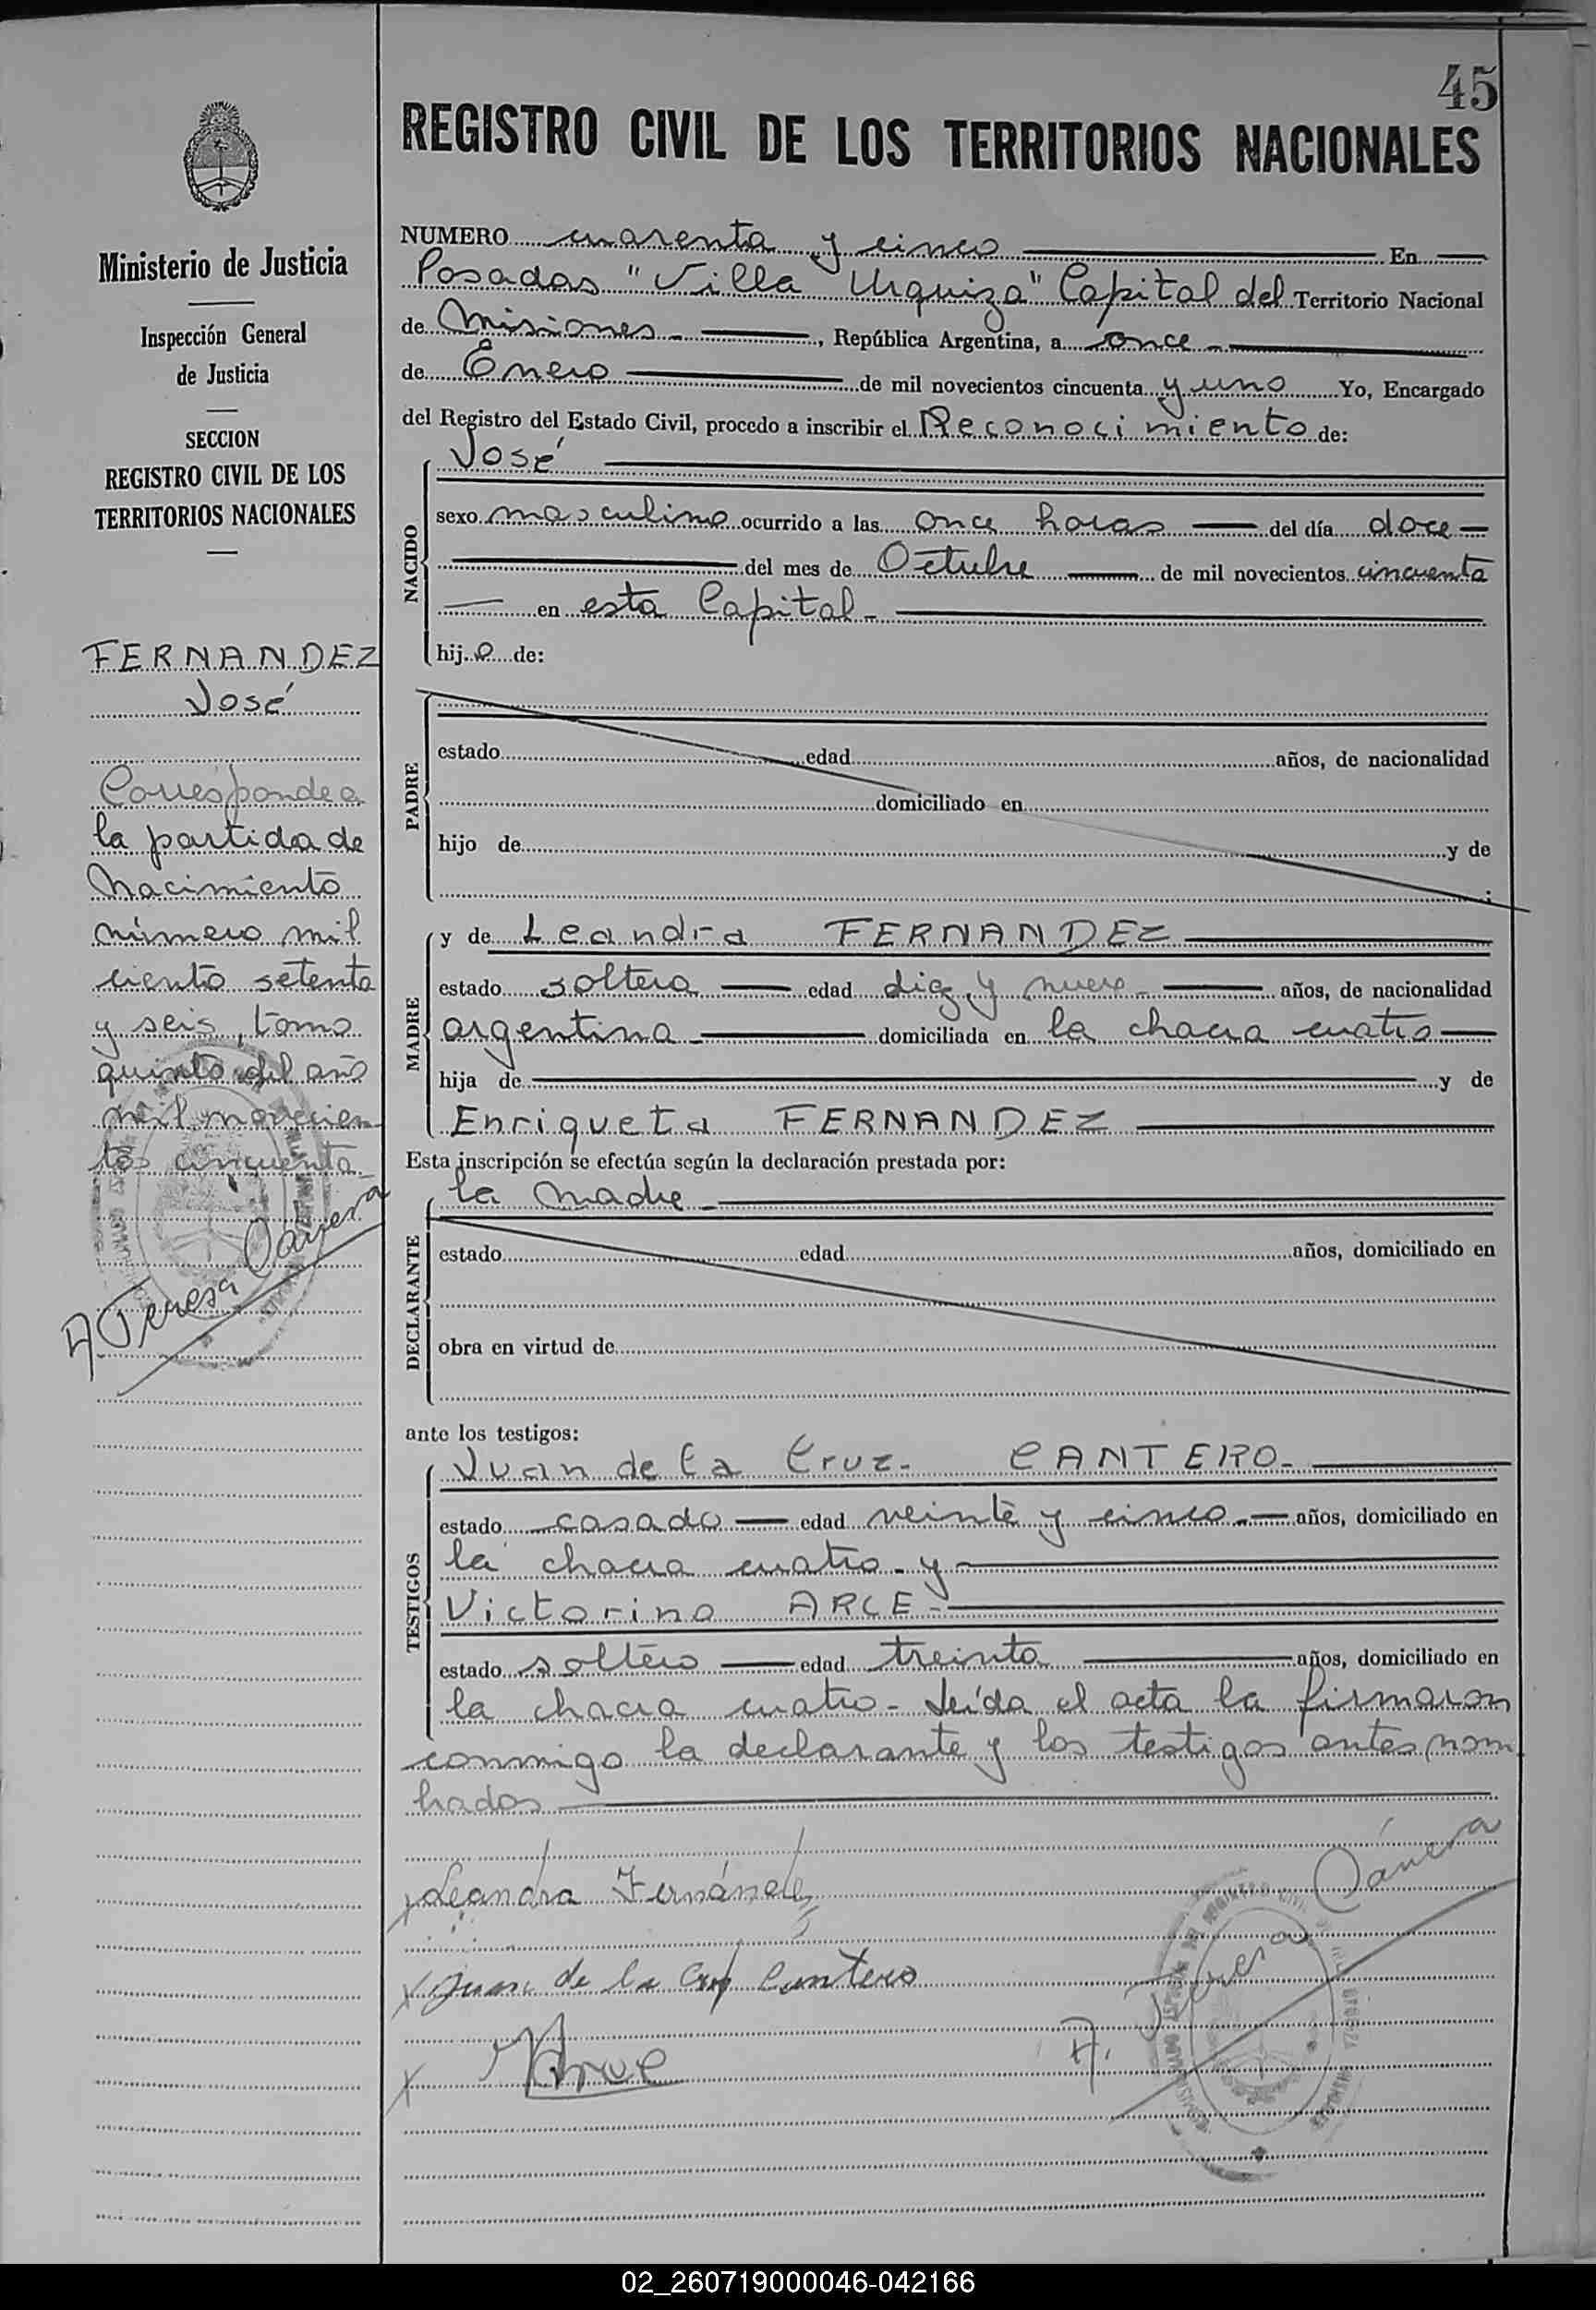 45
REGISTRO CIVIL DE LOS TERRITORIOS NACIONALES
Ministerio de Justicia
Inspección General
de Justicia
SECCION
REGISTRO CIVIL DE LOS
TERRITORIOS NACIONALES
FERNANDEZ
José
Corresponde a
la partida de
Nacimiento
número mil
ciento setenta
y seis, tomo
quinto del año
mil novecien
tos cincuenta
A Teresa Cánera
NUMERO cuarenta y cinco En
Posadas "Villa Urquiza" Capital del Territorio Nacional
de Misiones, República Argentina, a once
de Enero de mil novecientos cincuenta y uno Yo, Encargado
del Registro del Estado Civil, procedo a inscribir el Reconocimiento de:
José
NACIDO
sexo masculino ocurrido a las once horas del día doce
del mes de Octubre de mil novecientos cincuenta
en esta Capital
hijo de:
PADRE
estado edad años, de nacionalidad
domiciliado en
hijo de y de
;
MADRE
y de Leandra FERNANDEZ
estado soltera edad diez y nueve años, de nacionalidad
argentina domiciliada en la chacra cuatro
hija de y de
Enriqueta FERNANDEZ
Esta inscripción se efectúa según la declaración prestada por:
la madre
DECLARANTE
estado edad años, domiciliado en
obra en virtud de
ante los testigos:
TESTIGOS
Juan de la Cruz CANTERO
estado casado edad veinte y cinco años, domiciliado en
la chacra cuatro y
Victorino ARCE
estado soltero edad treinta años, domiciliado en
la chacra cuatro - Leída el acta la firmaron
conmigo la declarante y los testigos antes nom
brados
Leandra Fernández
Juan de la Cruz Cantero
VArce
A. Teresa Cánera
02_260719000046-042166